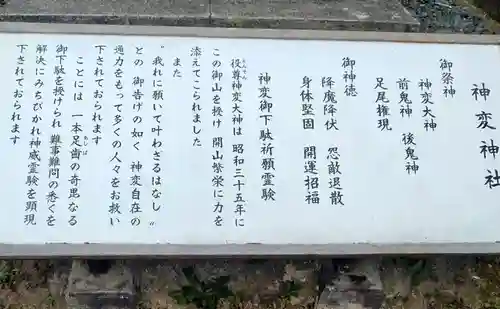 神変神社
御祭神
神変大神
前鬼神 後鬼神
足尾権現
御神徳
降魔降伏 怨敵退散
身体堅固 開運招福
神変御下駄祈願霊験
役尊神変大神は 昭和三十五年に
この御山を授け 開山繁栄に力を
添えてこられました
また
“我れに願いて叶わざるはなし„
との 御告げの如く 神変自在の
通力をもって多くの人々をお救い
下されておられます
ことには 一本足歯の奇思なる
御下駄を授けられ 難事難問の悉くを
解決にみちびかれ神威霊験を顕現
下されておられます